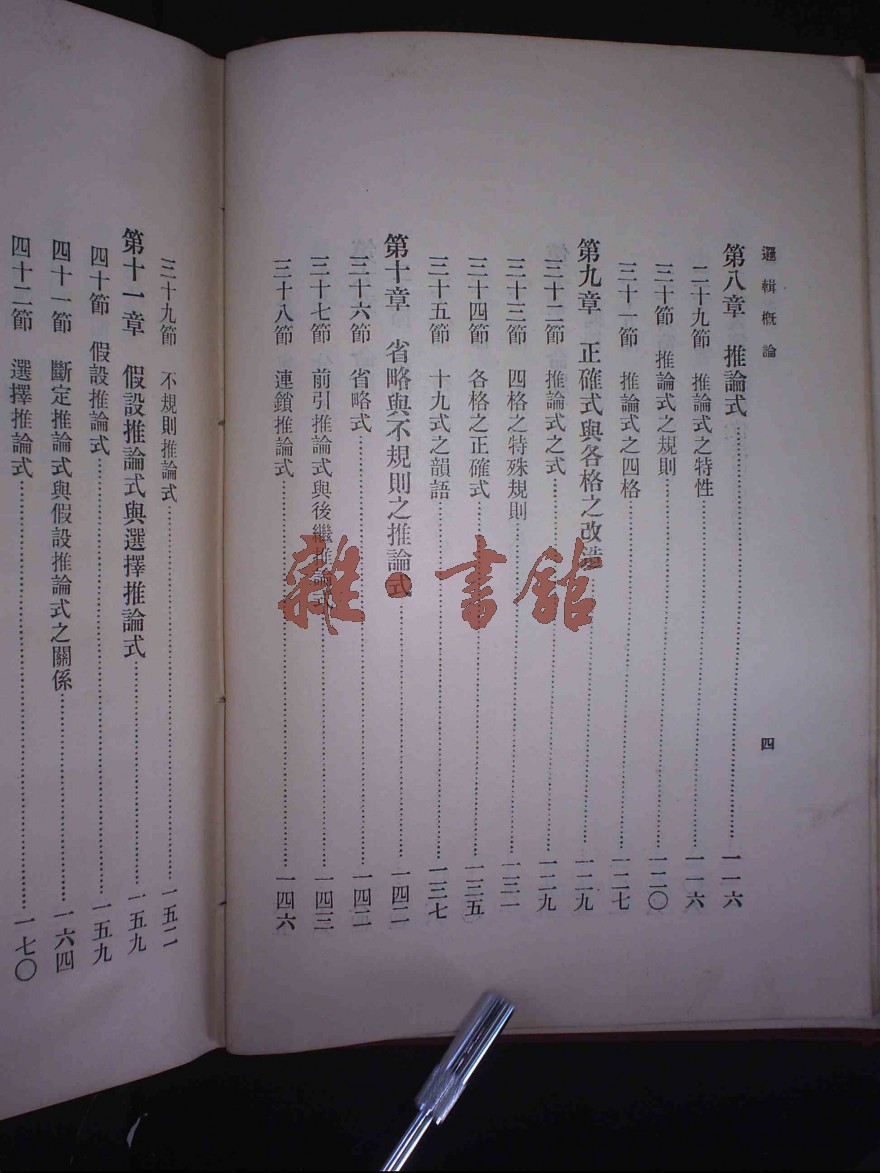 邏輯概論
四
第八章　推論式……一一六
二十九節　推論式之特性……一一六
三十節　推論式之規則……一二〇
三十一節　推論式之四格……一二七
第九章　正確式與各格之改造……一二九
三十二節　推論式之式……一二九
三十三節　四格之特殊規則……一三一
三十四節　各格之正確式……一三五
三十五節　十九式之韻語……一三七
第十章　省略與不規則之推論式……一四二
三十六節　省略式……一四二
三十七節　前引推論式與後繼推論式……一四三
三十八節　連鎖推論式……一四六
三十九節　不規則推論式……一五二
第十一章　假設推論式與選擇推論式……一五九
四十節　假設推論式……一五九
四十一節　斷定推論式與假設推論式之關係……一六四
四十二節　選擇推論式……一七〇
雜·書館